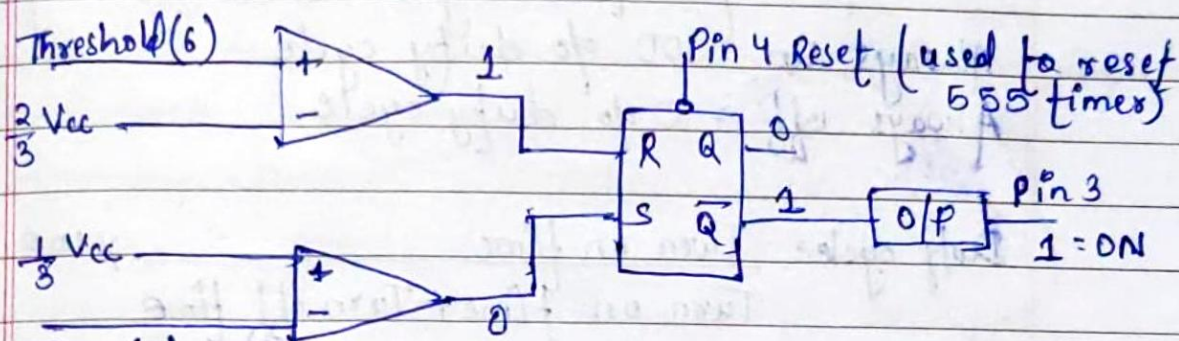 Threshold(6)
+
1
Pin 4 Reset (used to reset
555 timer)
2/3 Vcc
-
R Q 0
S Q̅ 1
O/P
Pin 3
1 = ON
1/3 Vcc
+
-
0